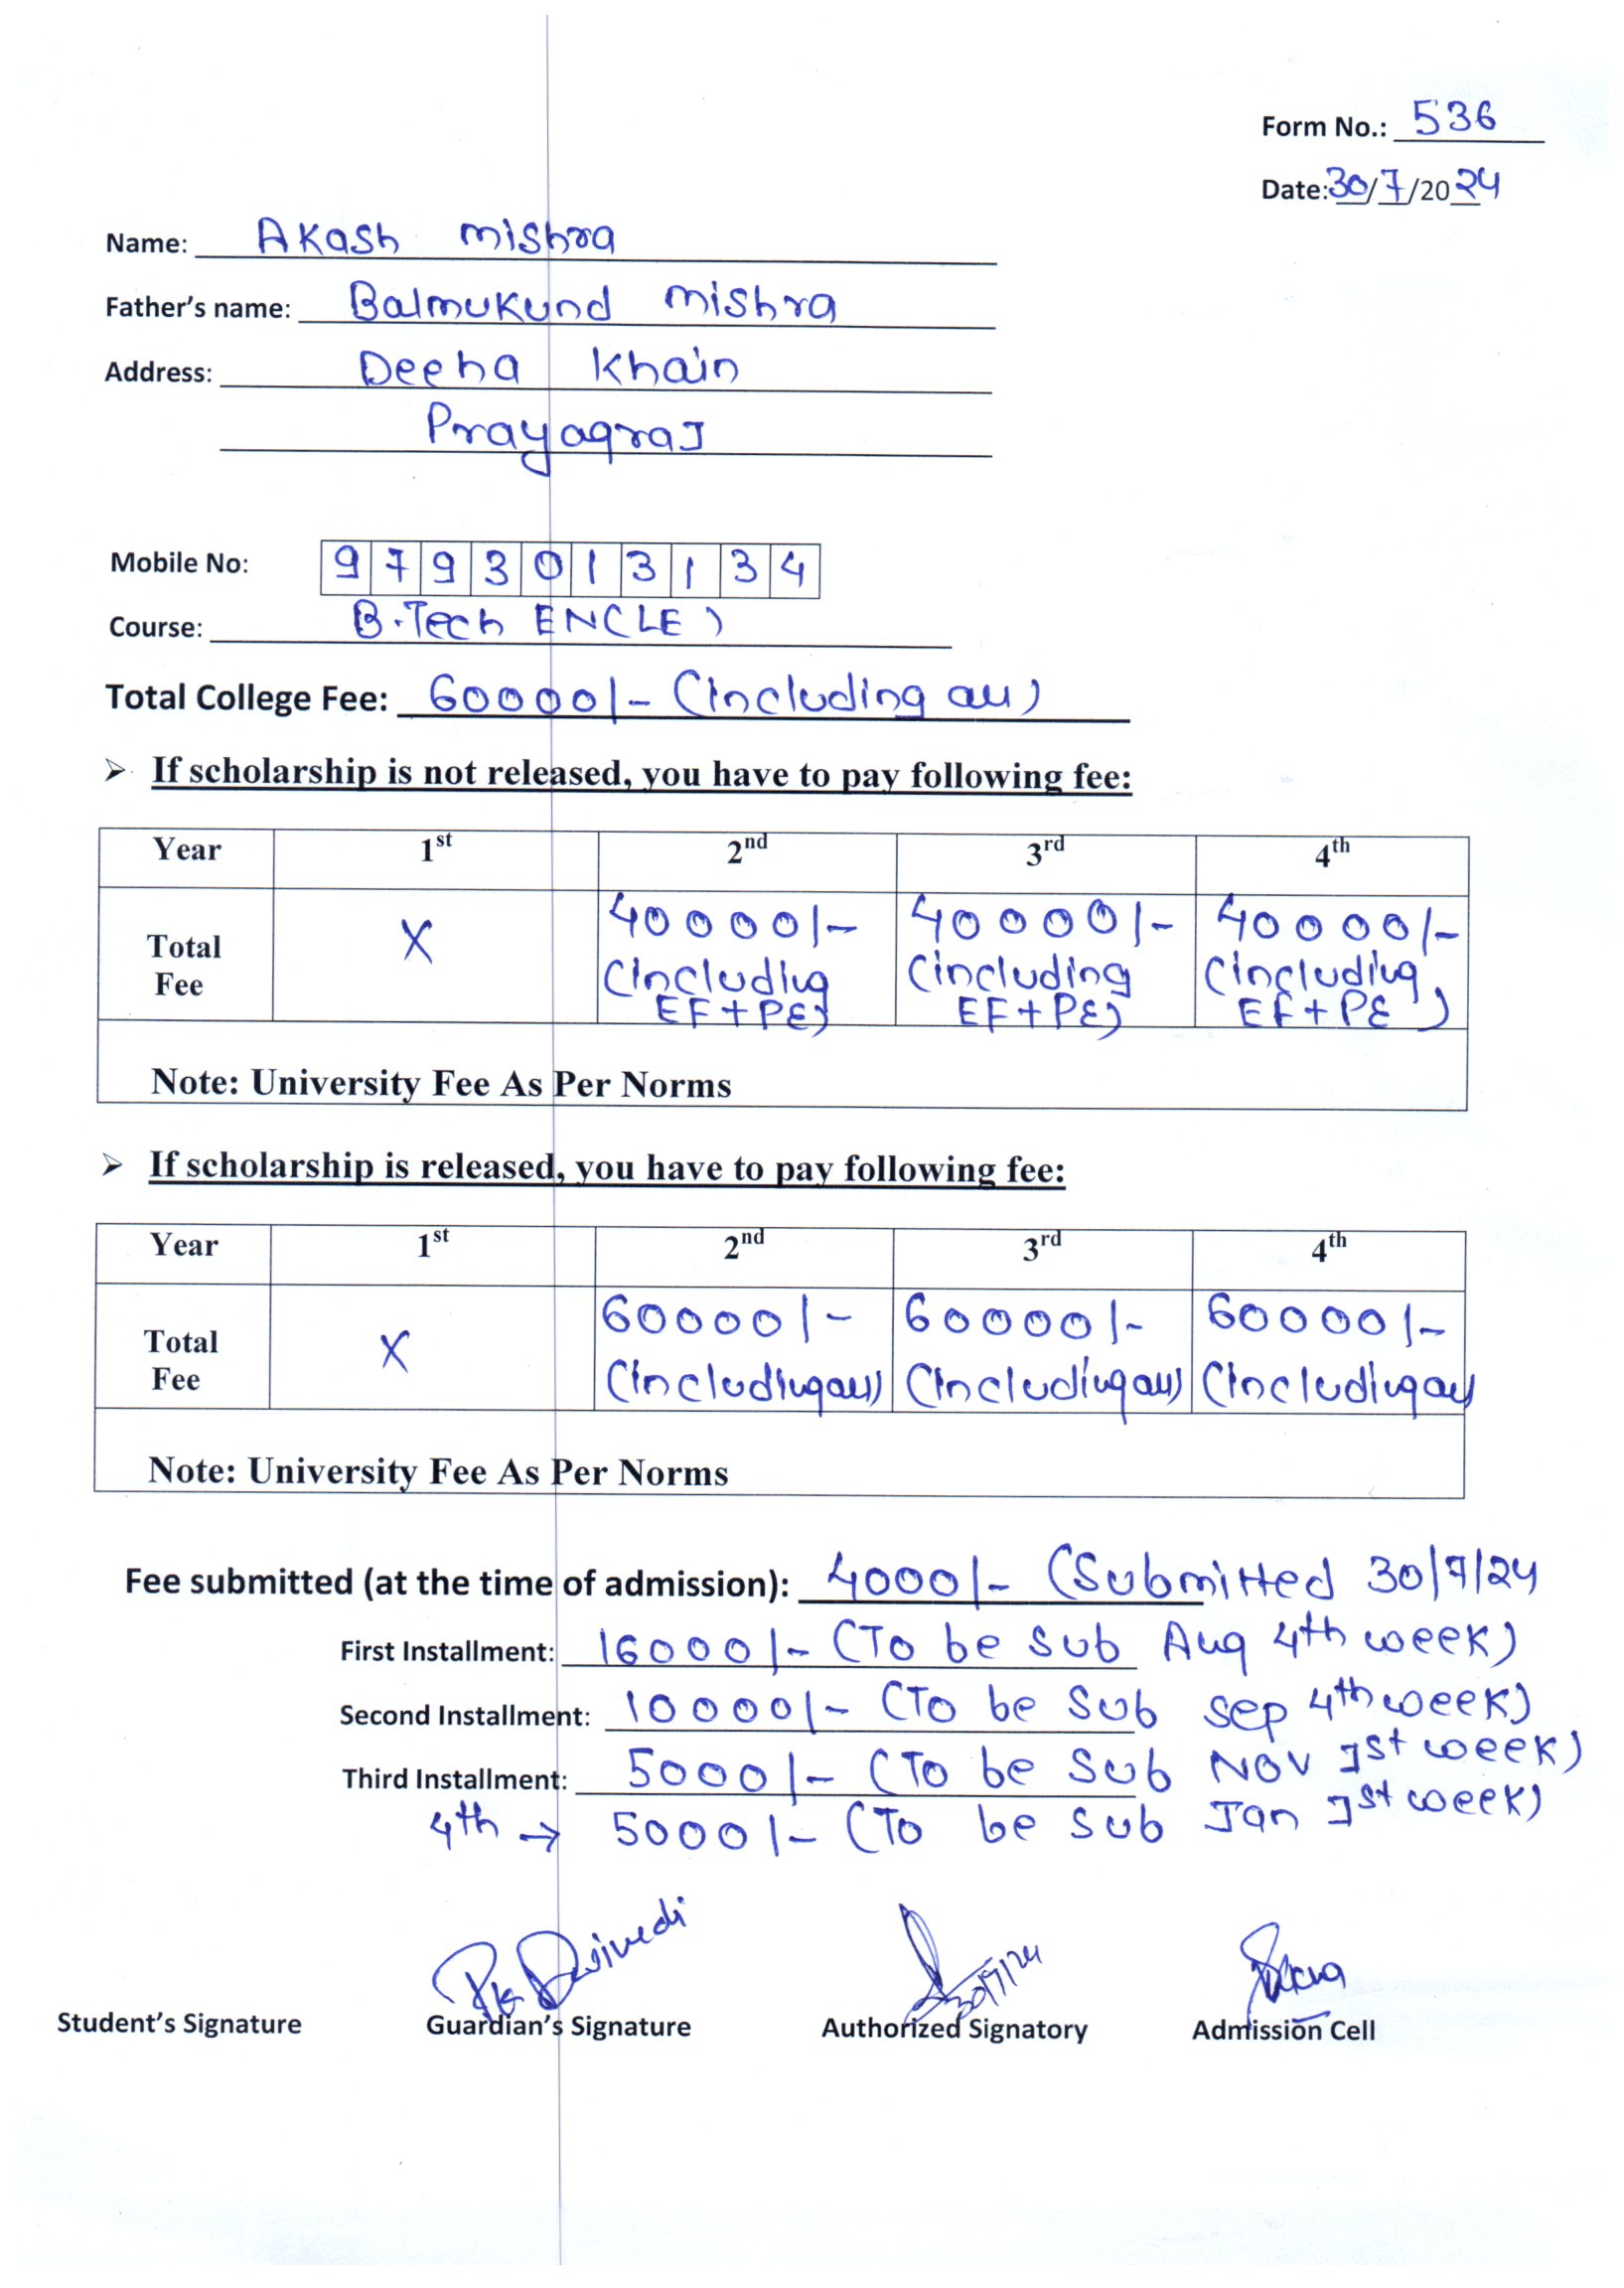 Form No.: 536
Date: 30/7/2024
Name: Akash mishra
Father's name: Balmukund mishra
Address: Deeha Khain
Prayagraj
Mobile No: 9793013134
Course: B.Tech EN(LE)
Total College Fee: 60000/- (Including all)
➢ If scholarship is not released, you have to pay following fee:
Year 1st 2nd 3rd 4th
Total Fee X 40000/- (including EF+PE) 40000/- (including EF+PE) 40000/- (including EF+PE)
Note: University Fee As Per Norms
➢ If scholarship is released, you have to pay following fee:
Year 1st 2nd 3rd 4th
Total Fee X 60000/- (Including all) 60000/- (Including all) 60000/- (Including all
Note: University Fee As Per Norms
Fee submitted (at the time of admission): 4000/- (Submitted 30/7/24
First Installment: 16000/- (To be sub Aug 4th week)
Second Installment: 10000/- (To be sub sep 4th week)
Third Installment: 5000/- (To be sub Nov 1st week)
4th → 5000/- (To be sub Jan 1st week)
PK Dwivedi 30/7/24
Student's Signature Guardian's Signature Authorized Signatory Admission Cell